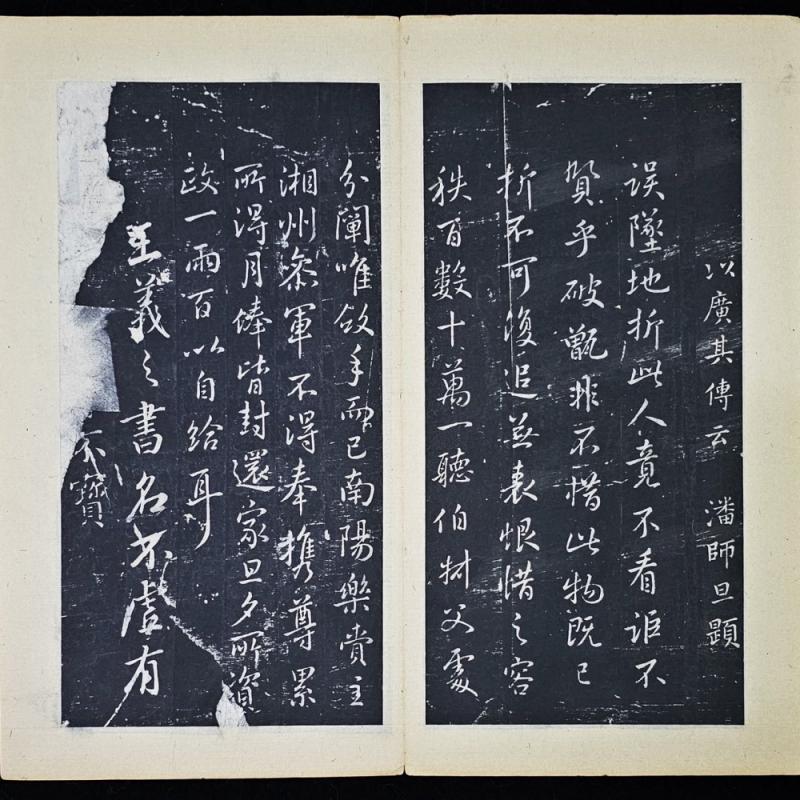 以廣其傳云 潘師旦題
誤墜地折此人竟不看詎不
賢乎破甑非不惜此物既已
折不可復追並表恨惜之容
秩百數十萬一聽伯
父處
分闡唯斂手而已南陽樂賞主
湘州參軍不得奉攜尊累
所得月俸皆封還家旦夕所資
政一兩百以自給耳
王羲之書名不虛有
不寶